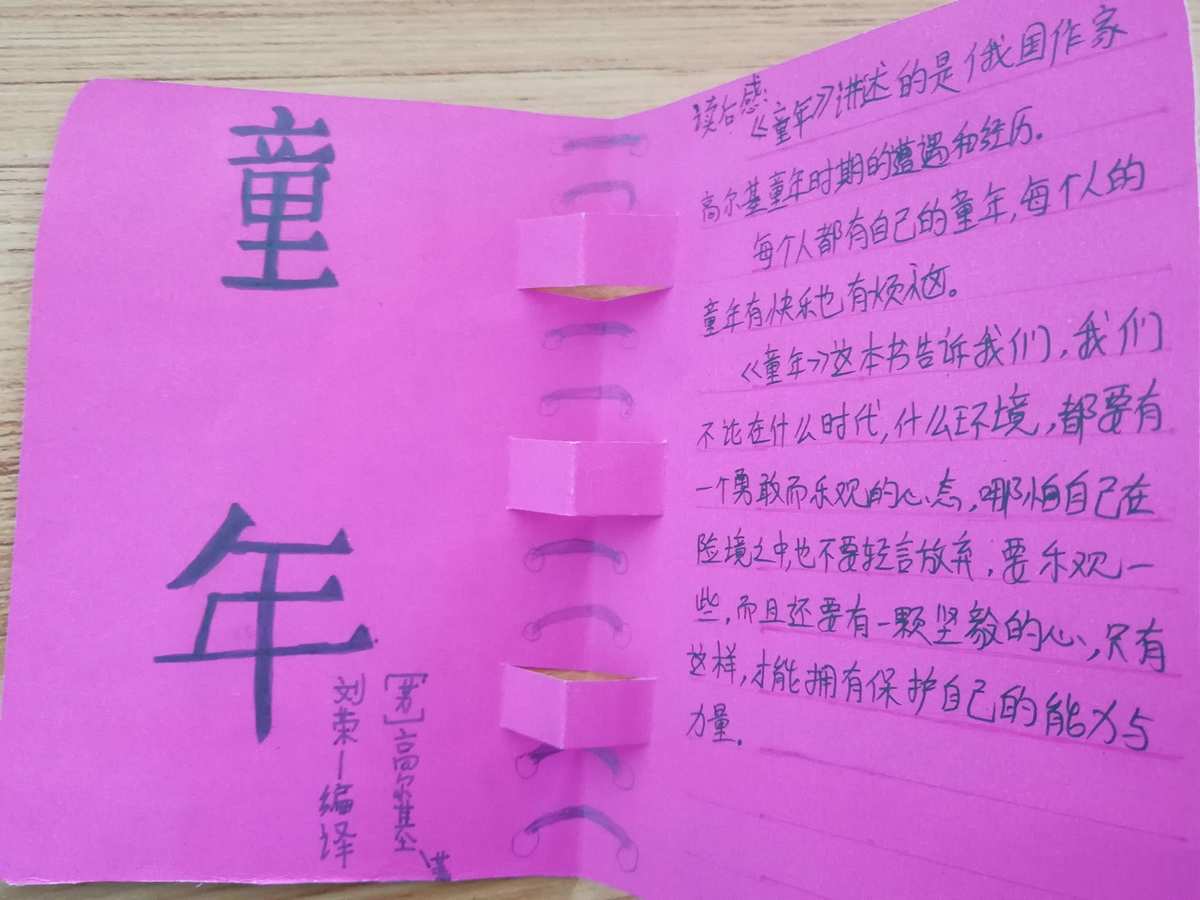 童
年
高尔基\著
刘荣一编译
读后感:
《童年》讲述的是俄国作家
高尔基童年时期的遭遇和经历.
每个人都有自己的童年,每个人的
童年有快乐也有烦恼。
《童年》这本书告诉我们,我们
不比在什么时代,什么环境,都要有
一个勇敢而乐观的心态,哪怕自己在
险境之中,也不要轻言放弃,要乐观一
些,而且还要有一颗坚毅的心,只有
这样,才能拥有保护自己的能力与
力量.